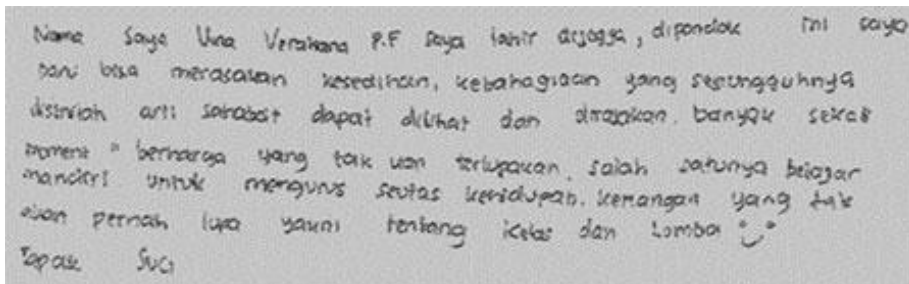 Nama saya Vina Verahana P.F saya lahir dijogja, dipondok ini saya
baru bisa merasakan kesedihan, kebahagiaan yang sesungguhnya
disinilah arti sahabat dapat dilihat dan dirasakan. banyak sekali
moment " berharga yang tak kan terlupakan. salah satunya belajar
mandiri untuk mengurus seutas kehidupan. kenangan yang tak
akan pernah lupa yakni tentang kelas dan Lomba
Tapak Suci